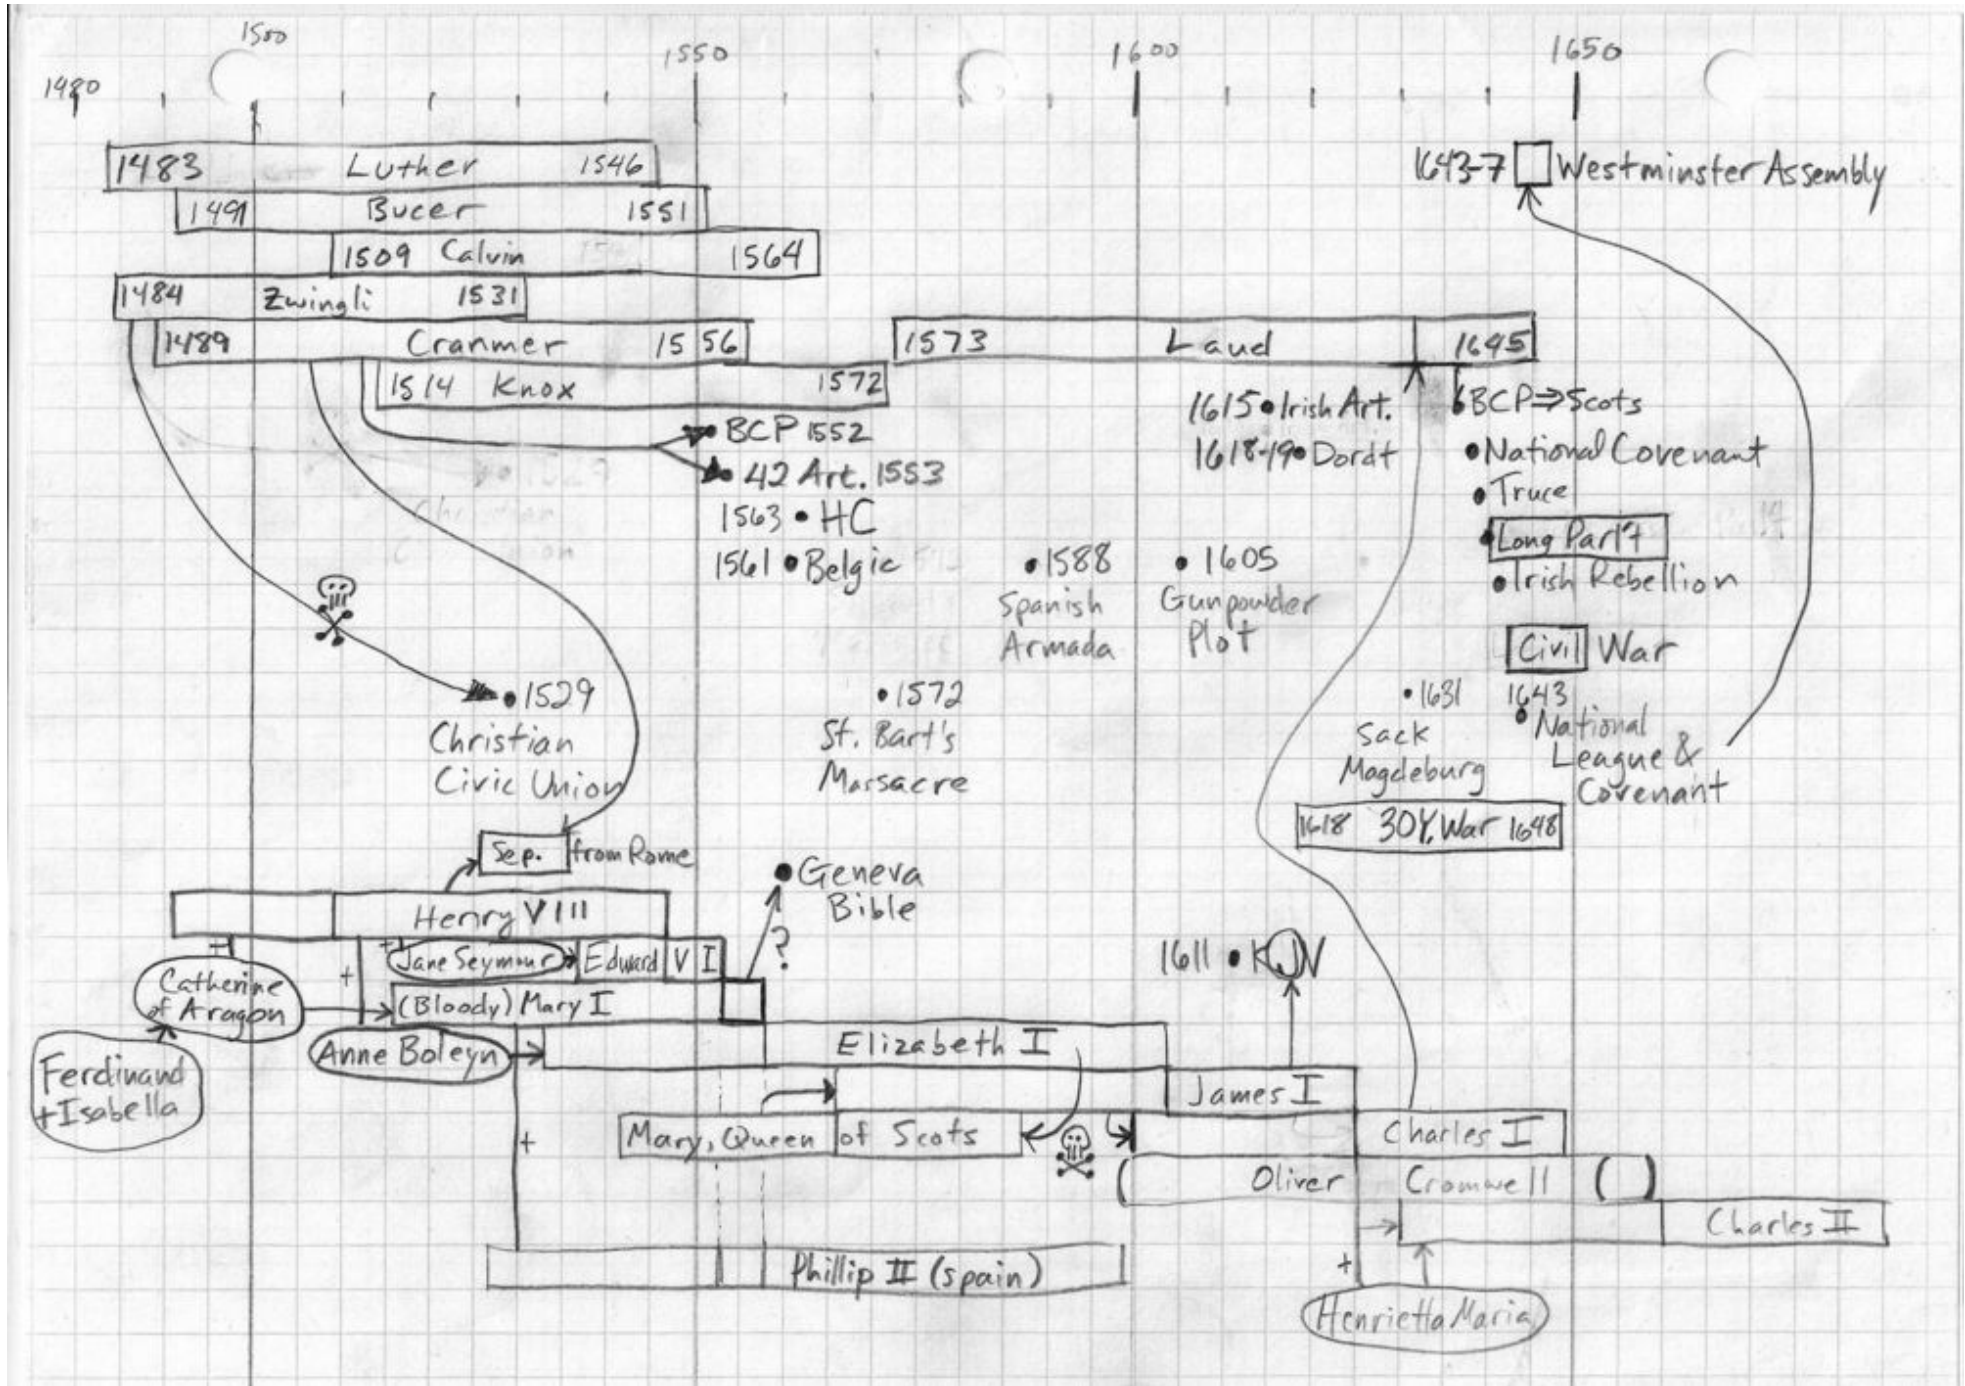 1480
1500
1550
1600
1650
1483 Luther 1546
1491 Bucer 1551
1509 Calvin 1564
1484 Zwingli 1531
1489 Cranmer 1556
1514 Knox 1572
1573 Laud 1645
1643-7 Westminster Assembly
BCP 1552
42 Art. 1553
1563 • HC
1561 • Belgic
1615 • Irish Art.
1618-19 • Dordt
BCP ⇒ Scots
• National Covenant
• Truce
• Long Parl't
• Irish Rebellion
Civil War
1643
• National
League &
Covenant
• 1588
Spanish
Armada
• 1605
Gunpowder
Plot
• 1529
Christian
Civic Union
• 1572
St. Bart's
Massacre
• 1631
Sack
Magdeburg
1618 30 Y. War 1648
Sep. from Rome
• Geneva
Bible
?
1611 • KJV
Henry VIII
+ Jane Seymour
Edward VI
+
Catherine
of Aragon
+
(Bloody) Mary I
Ferdinand
+ Isabella
Anne Boleyn
Elizabeth I
James I
Mary, Queen of Scots
Charles I
+
Oliver Cromwell ( )
Charles II
Phillip II (spain)
+
Henrietta Maria